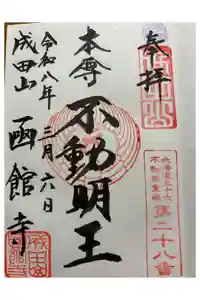 奉拝
北海道三十六
不動尊霊場
第二十八番
本尊
不動明王
令和八年三月六日
成田山
函館寺